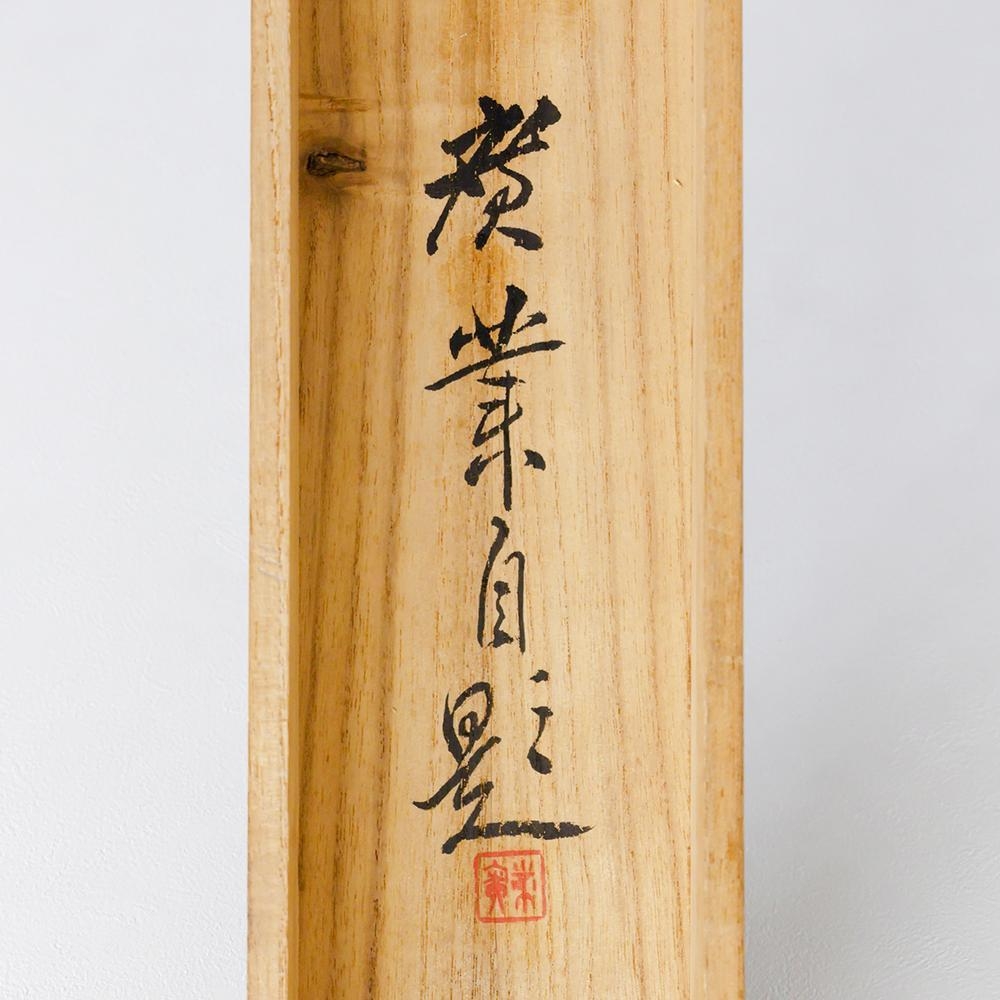 廣業自題